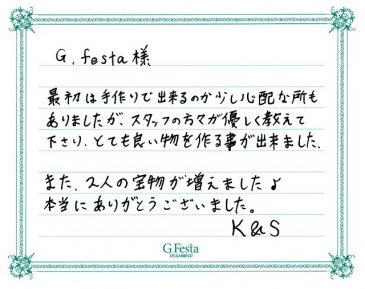 G. festa 様
最初は手作りで出来るのか少し心配な所も
ありましたが、スタッフの方々が優しく教えて
下さり、とても良い物を作る事が出来ました。
また、2人の宝物が増えました♪
本当にありがとうございました。
K&S
G.Festa
DIAMOND